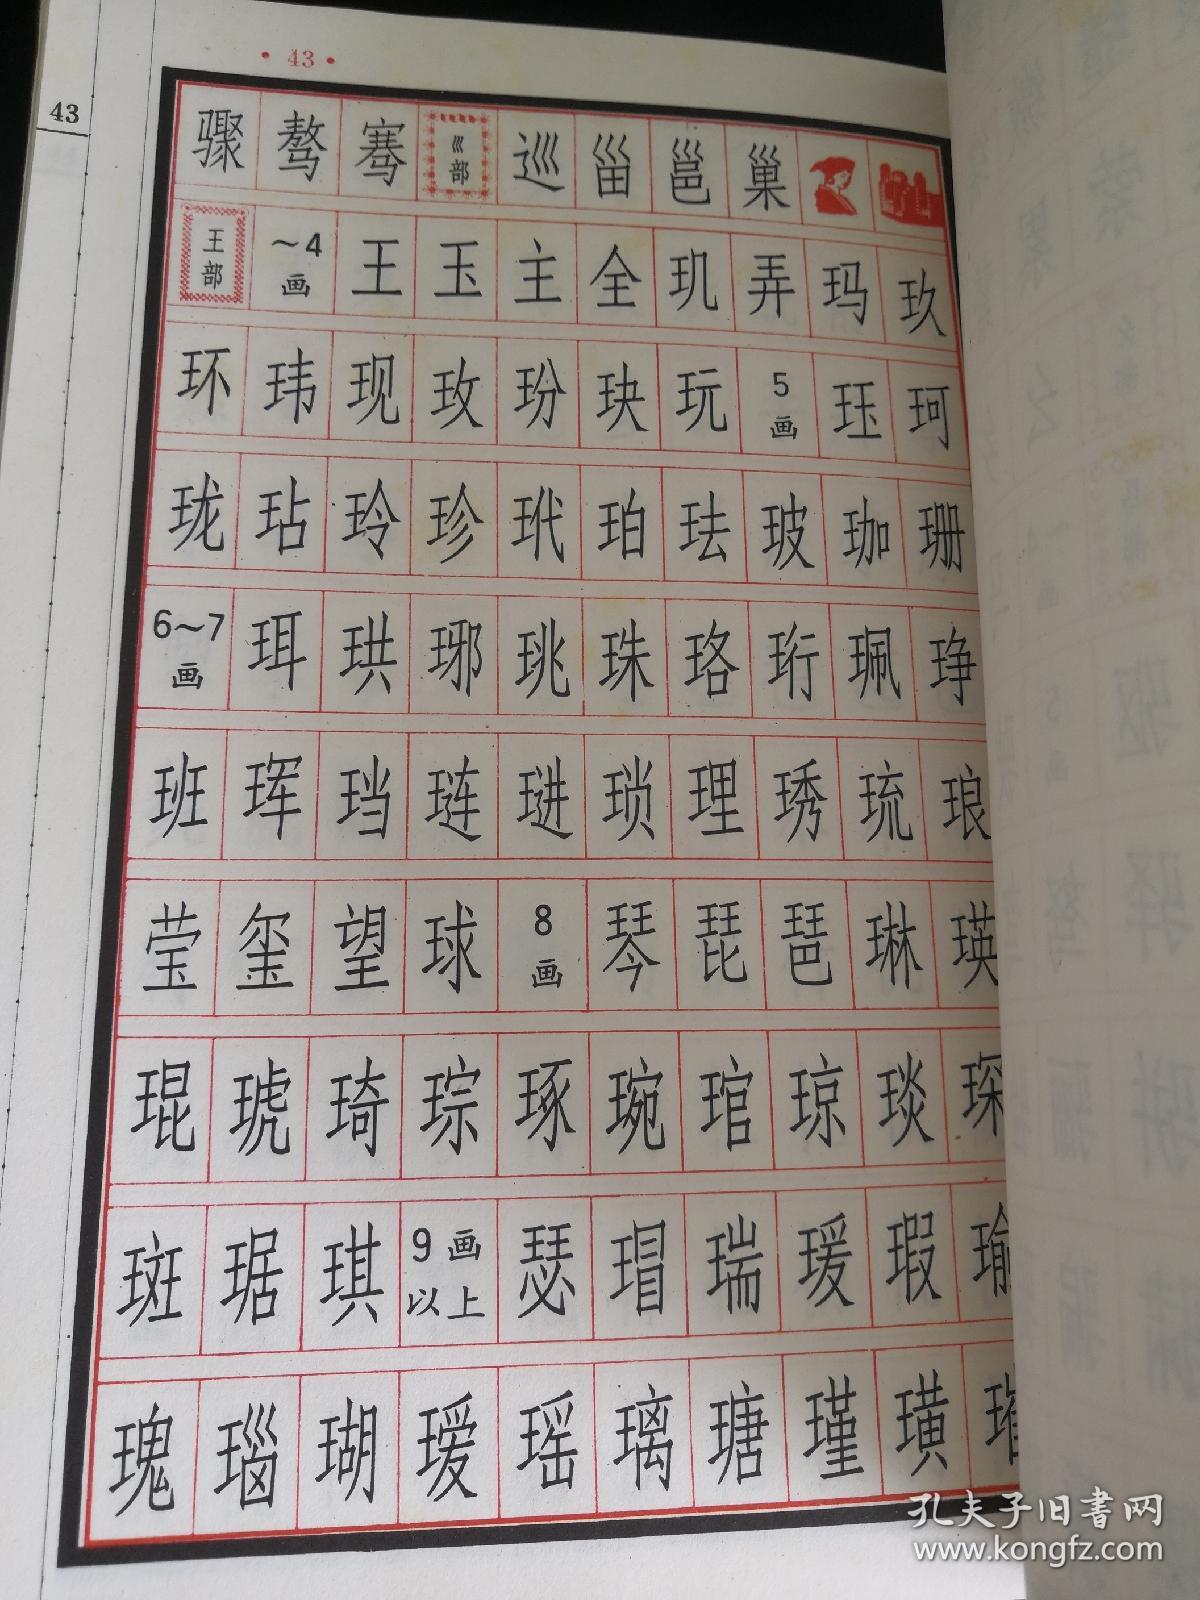 ·43·
43
骤 骜 骞 巛部 巡 甾 邕 巢
王部 ～4画 王 玉 主 全 玑 弄 玛 玖
环 玮 现 玫 玢 玦 玩 5画 珏 珂
珑 玷 玲 珍 玳 珀 珐 玻 珈 珊
6～7画 珥 珙 琊 珧 珠 珞 珩 珮 琤
班 珲 珰 琏 琎 琐 理 琇 琉 琅
莹 玺 望 球 8画 琴 琵 琶 琳 瑛
琨 琥 琦 琮 琢 琬 琯 琼 琰 琛
斑 琚 琪 9画以上 瑟 瑁 瑞 瑗 瑕 瑜
瑰 瑙 瑚 瑷 瑶 璃 瑭 瑾 璜
孔夫子旧书网
www.kongfz.com